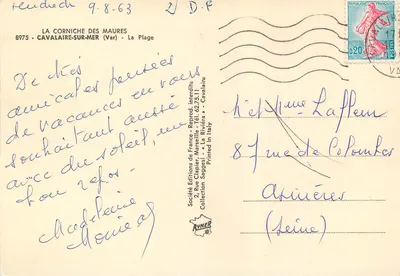 vendredi 9.8.63
LA CORNICHE DES MAURES
8975 - CAVALAIRE-SUR-MER (Var) - La Plage
De très
amicales pensées
de vacances en vous
souhaitant aussi
avec du soleil, un
bon repos.
Madeleine
Société Editions de France - Reprod. interdite
2, Rue Clapier, Marseille - Tél. 62.75.11
Collection Seggesi - « Le Riviera » - Cavalaire
Printed in Italy
RYNER
0,20
M et Mme Lafleur
87 rue de Colombes
Asnières
(Seine)